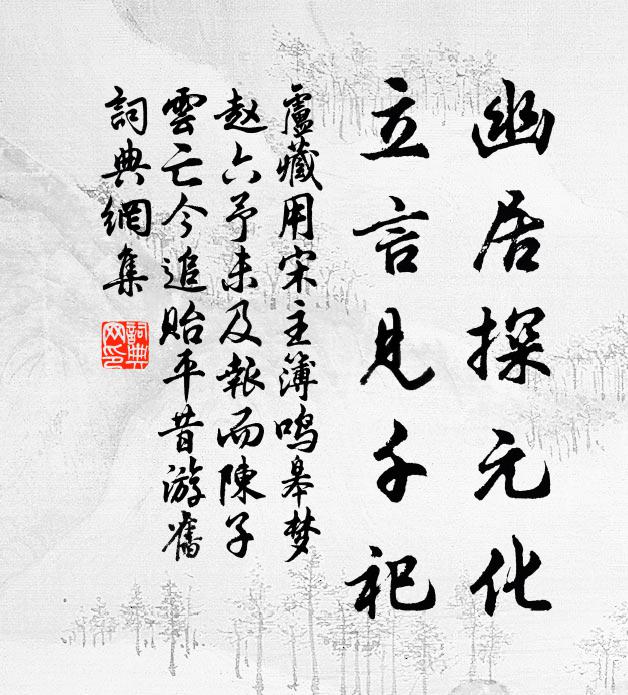 幽居探元化
立言見千祀
盧藏用宋主簿鸣皋梦
赵六予未及報而陳子
雲亡今追貽平昔游舊
詞典網集
詞典
网印